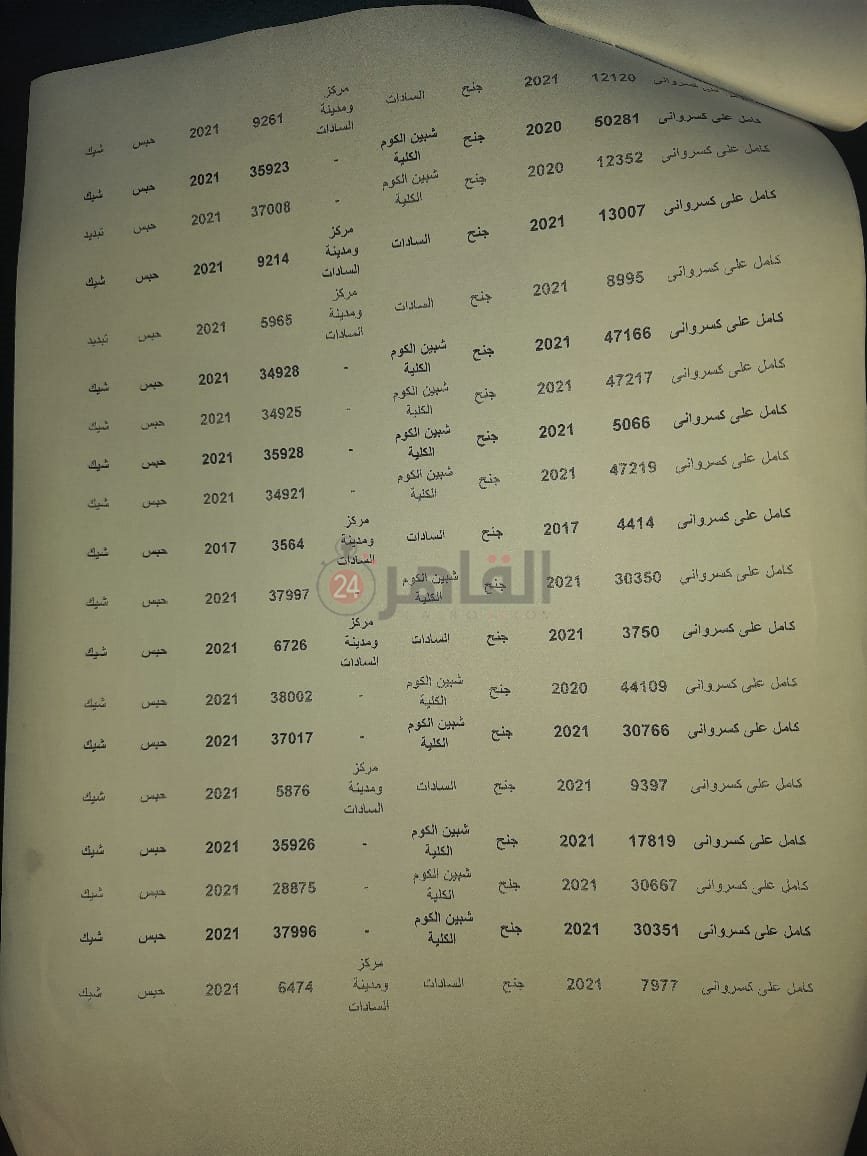 على كسروانى 12120 2021 جنح السادات مركز ومدينة السادات 9261 2021 حبس شيك
كامل على كسروانى 50281 2020 جنح شبين الكوم الكلية - 35923 2021 حبس شيك
كامل على كسروانى 12352 2020 جنح شبين الكوم الكلية - 37008 2021 حبس تبديد
كامل على كسروانى 13007 2021 جنح السادات مركز ومدينة السادات 9214 2021 حبس شيك
كامل على كسروانى 8995 2021 جنح السادات مركز ومدينة السادات 5965 2021 حبس تبديد
كامل على كسروانى 47166 2021 جنح شبين الكوم الكلية - 34928 2021 حبس شيك
كامل على كسروانى 47217 2021 جنح شبين الكوم الكلية - 34925 2021 حبس شيك
كامل على كسروانى 5066 2021 جنح شبين الكوم الكلية - 35928 2021 حبس شيك
كامل على كسروانى 47219 2021 جنح شبين الكوم الكلية - 34921 2021 حبس شيك
كامل على كسروانى 4414 2017 جنح السادات مركز ومدينة السادات 3564 2017 حبس شيك
القاهرة 24
كامل على كسروانى 30350 2021 جنح شبين الكوم الكلية - 37997 2021 حبس شيك
كامل على كسروانى 3750 2021 جنح السادات مركز ومدينة السادات 6726 2021 حبس شيك
كامل على كسروانى 44109 2020 جنح شبين الكوم الكلية - 38002 2021 حبس شيك
كامل على كسروانى 30766 2021 جنح شبين الكوم الكلية - 37017 2021 حبس شيك
كامل على كسروانى 9397 2021 جنح السادات مركز ومدينة السادات 5876 2021 حبس شيك
كامل على كسروانى 17819 2021 جنح شبين الكوم الكلية - 35926 2021 حبس شيك
كامل على كسروانى 30667 2021 جنح شبين الكوم الكلية - 28875 2021 حبس شيك
كامل على كسروانى 30351 2021 جنح شبين الكوم الكلية - 37996 2021 حبس شيك
كامل على كسروانى 7977 2021 جنح السادات مركز ومدينة السادات 6474 2021 حبس شيك